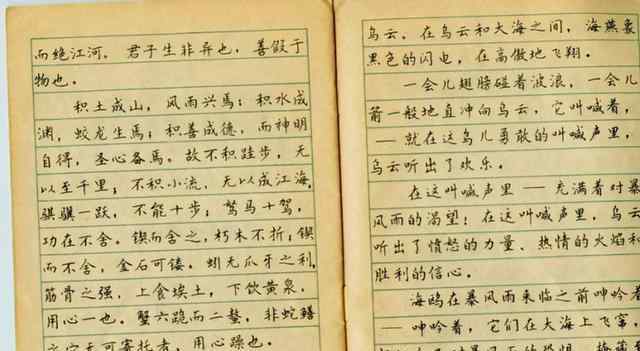 而绝江河，君子生非异也，善假于
物也。
积土成山，风雨兴焉；积水成
渊，蛟龙生焉；积善成德，而神明
自得，圣心备焉。故不积跬步，无
以至千里；不积小流，无以成江海，
骐骥一跃，不能十步；驽马十驾，
功在不舍。锲而舍之，朽木不折；锲
而不舍，金石可镂。蚓无爪牙之利，
筋骨之强，上食埃土，下饮黄泉，
用心一也。蟹六跪而二螯，非蛇鳝
之穴无可寄托者，用心躁也。
乌云。在乌云和大海之间，海燕象
黑色的闪电，在高傲地飞翔。
一会儿翅膀碰着波浪，一会儿
箭一般地直冲向乌云，它叫喊着，
—就在这鸟儿勇敢的叫喊声里，
乌云听出了欢乐。
在这叫喊声里—充满着对暴
风雨的渴望！在这叫喊声里，乌云
听出了愤怒的力量、热情的火焰和
胜利的信心。
海鸥在暴风雨来临之前呻吟着
—呻吟着，它们在大海上飞窜，